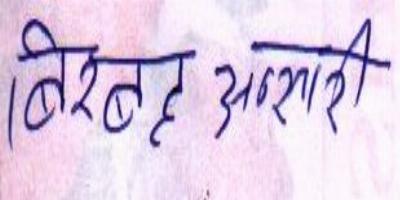 बिरबह अन्सारी